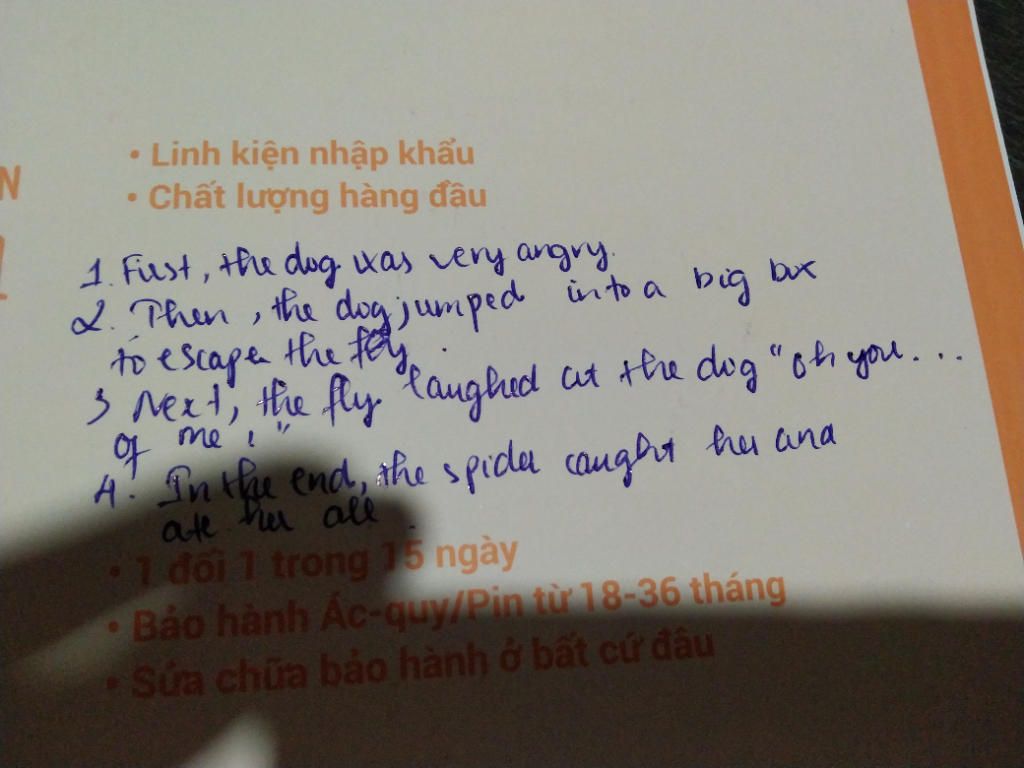 N
• Linh kiện nhập khẩu
• Chất lượng hàng đầu
1. First, the dog was very angry.
2. Then, the dog jumped into a big box
to escape the fly.
3 Next, the fly laughed at the dog "oh you...
of me!"
4. In the end, the spider caught her and
ate her all.
• 1 đổi 1 trong 15 ngày
• Bảo hành Ác-quy/Pin từ 18-36 tháng
• Sửa chữa bảo hành ở bất cứ đâu